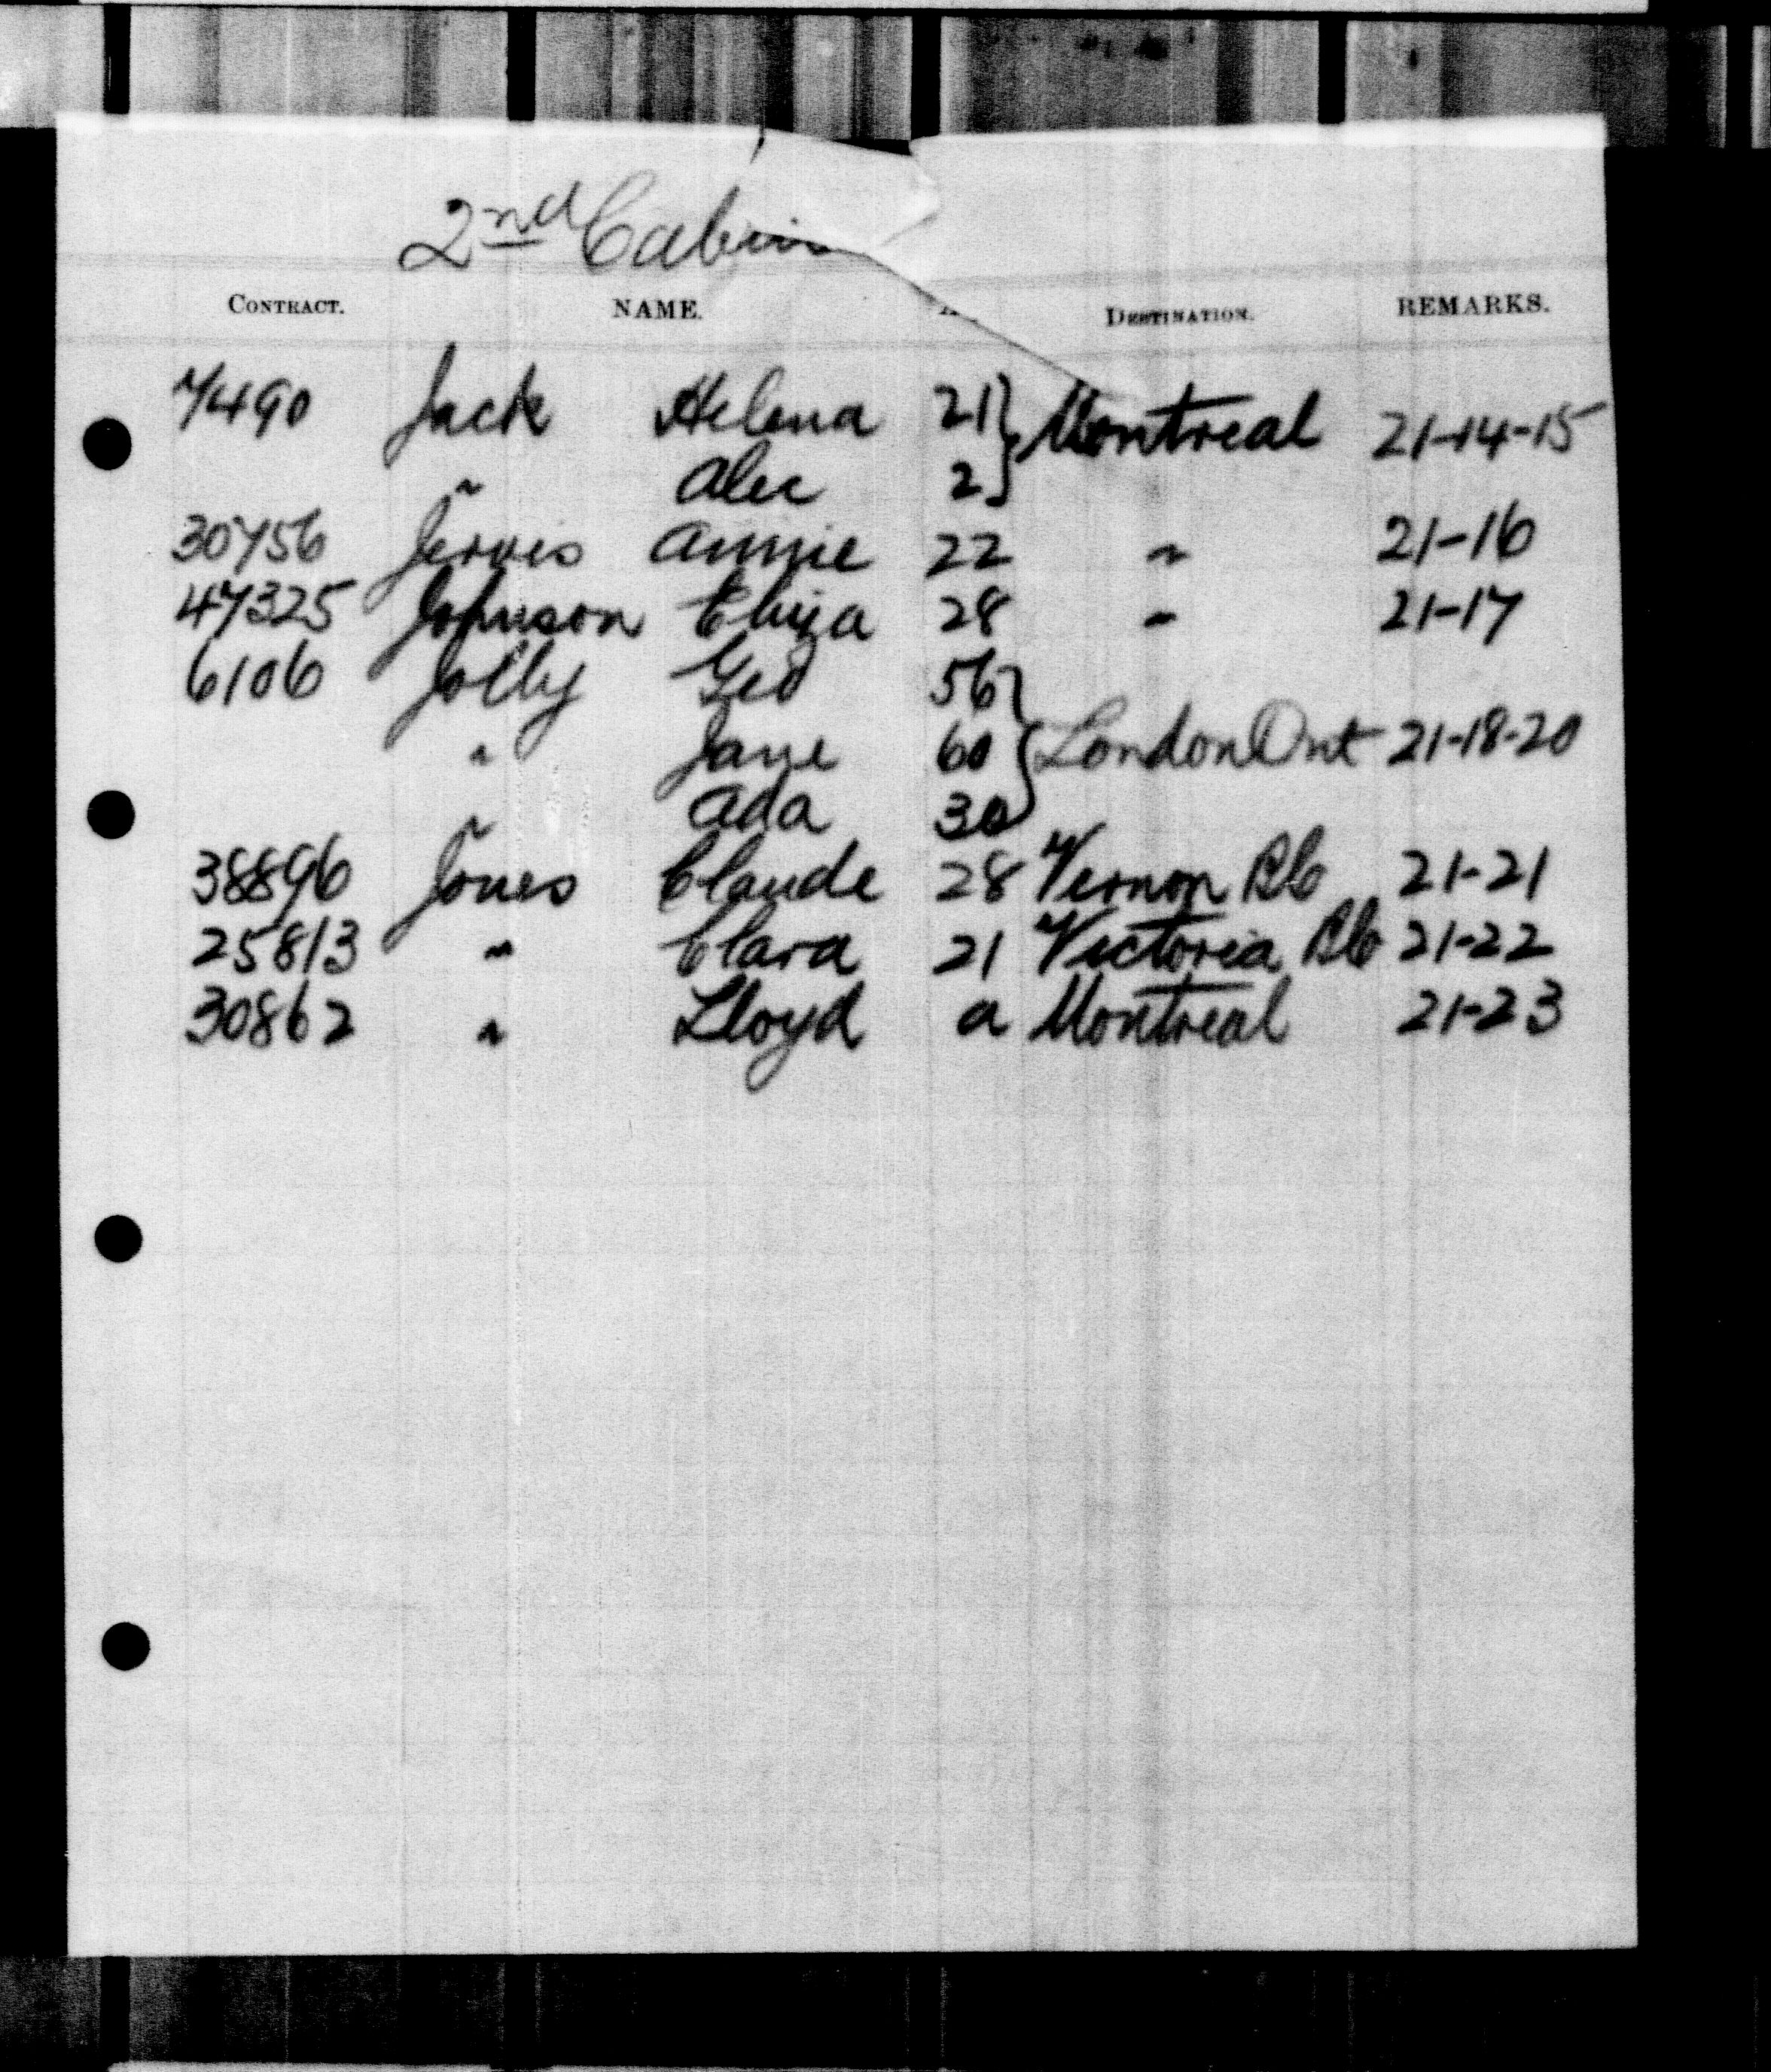 2nd Cabin
CONTRACT. NAME. DESTINATION. REMARKS.
7490 Jack Helena 21 } Montreal 21-14-15
" Alec 2 }
30756 Jervis Annie 22 " 21-16
47325 Johnson Eliza 28 " 21-17
6106 Jolly Geo 56 }
" Jane 60 } London Ont 21-18-20
" Ada 30 }
38896 Jones Claude 28 Vernon BC 21-21
25813 " Clara 21 Victoria BC 21-22
30862 " Lloyd a Montreal 21-23